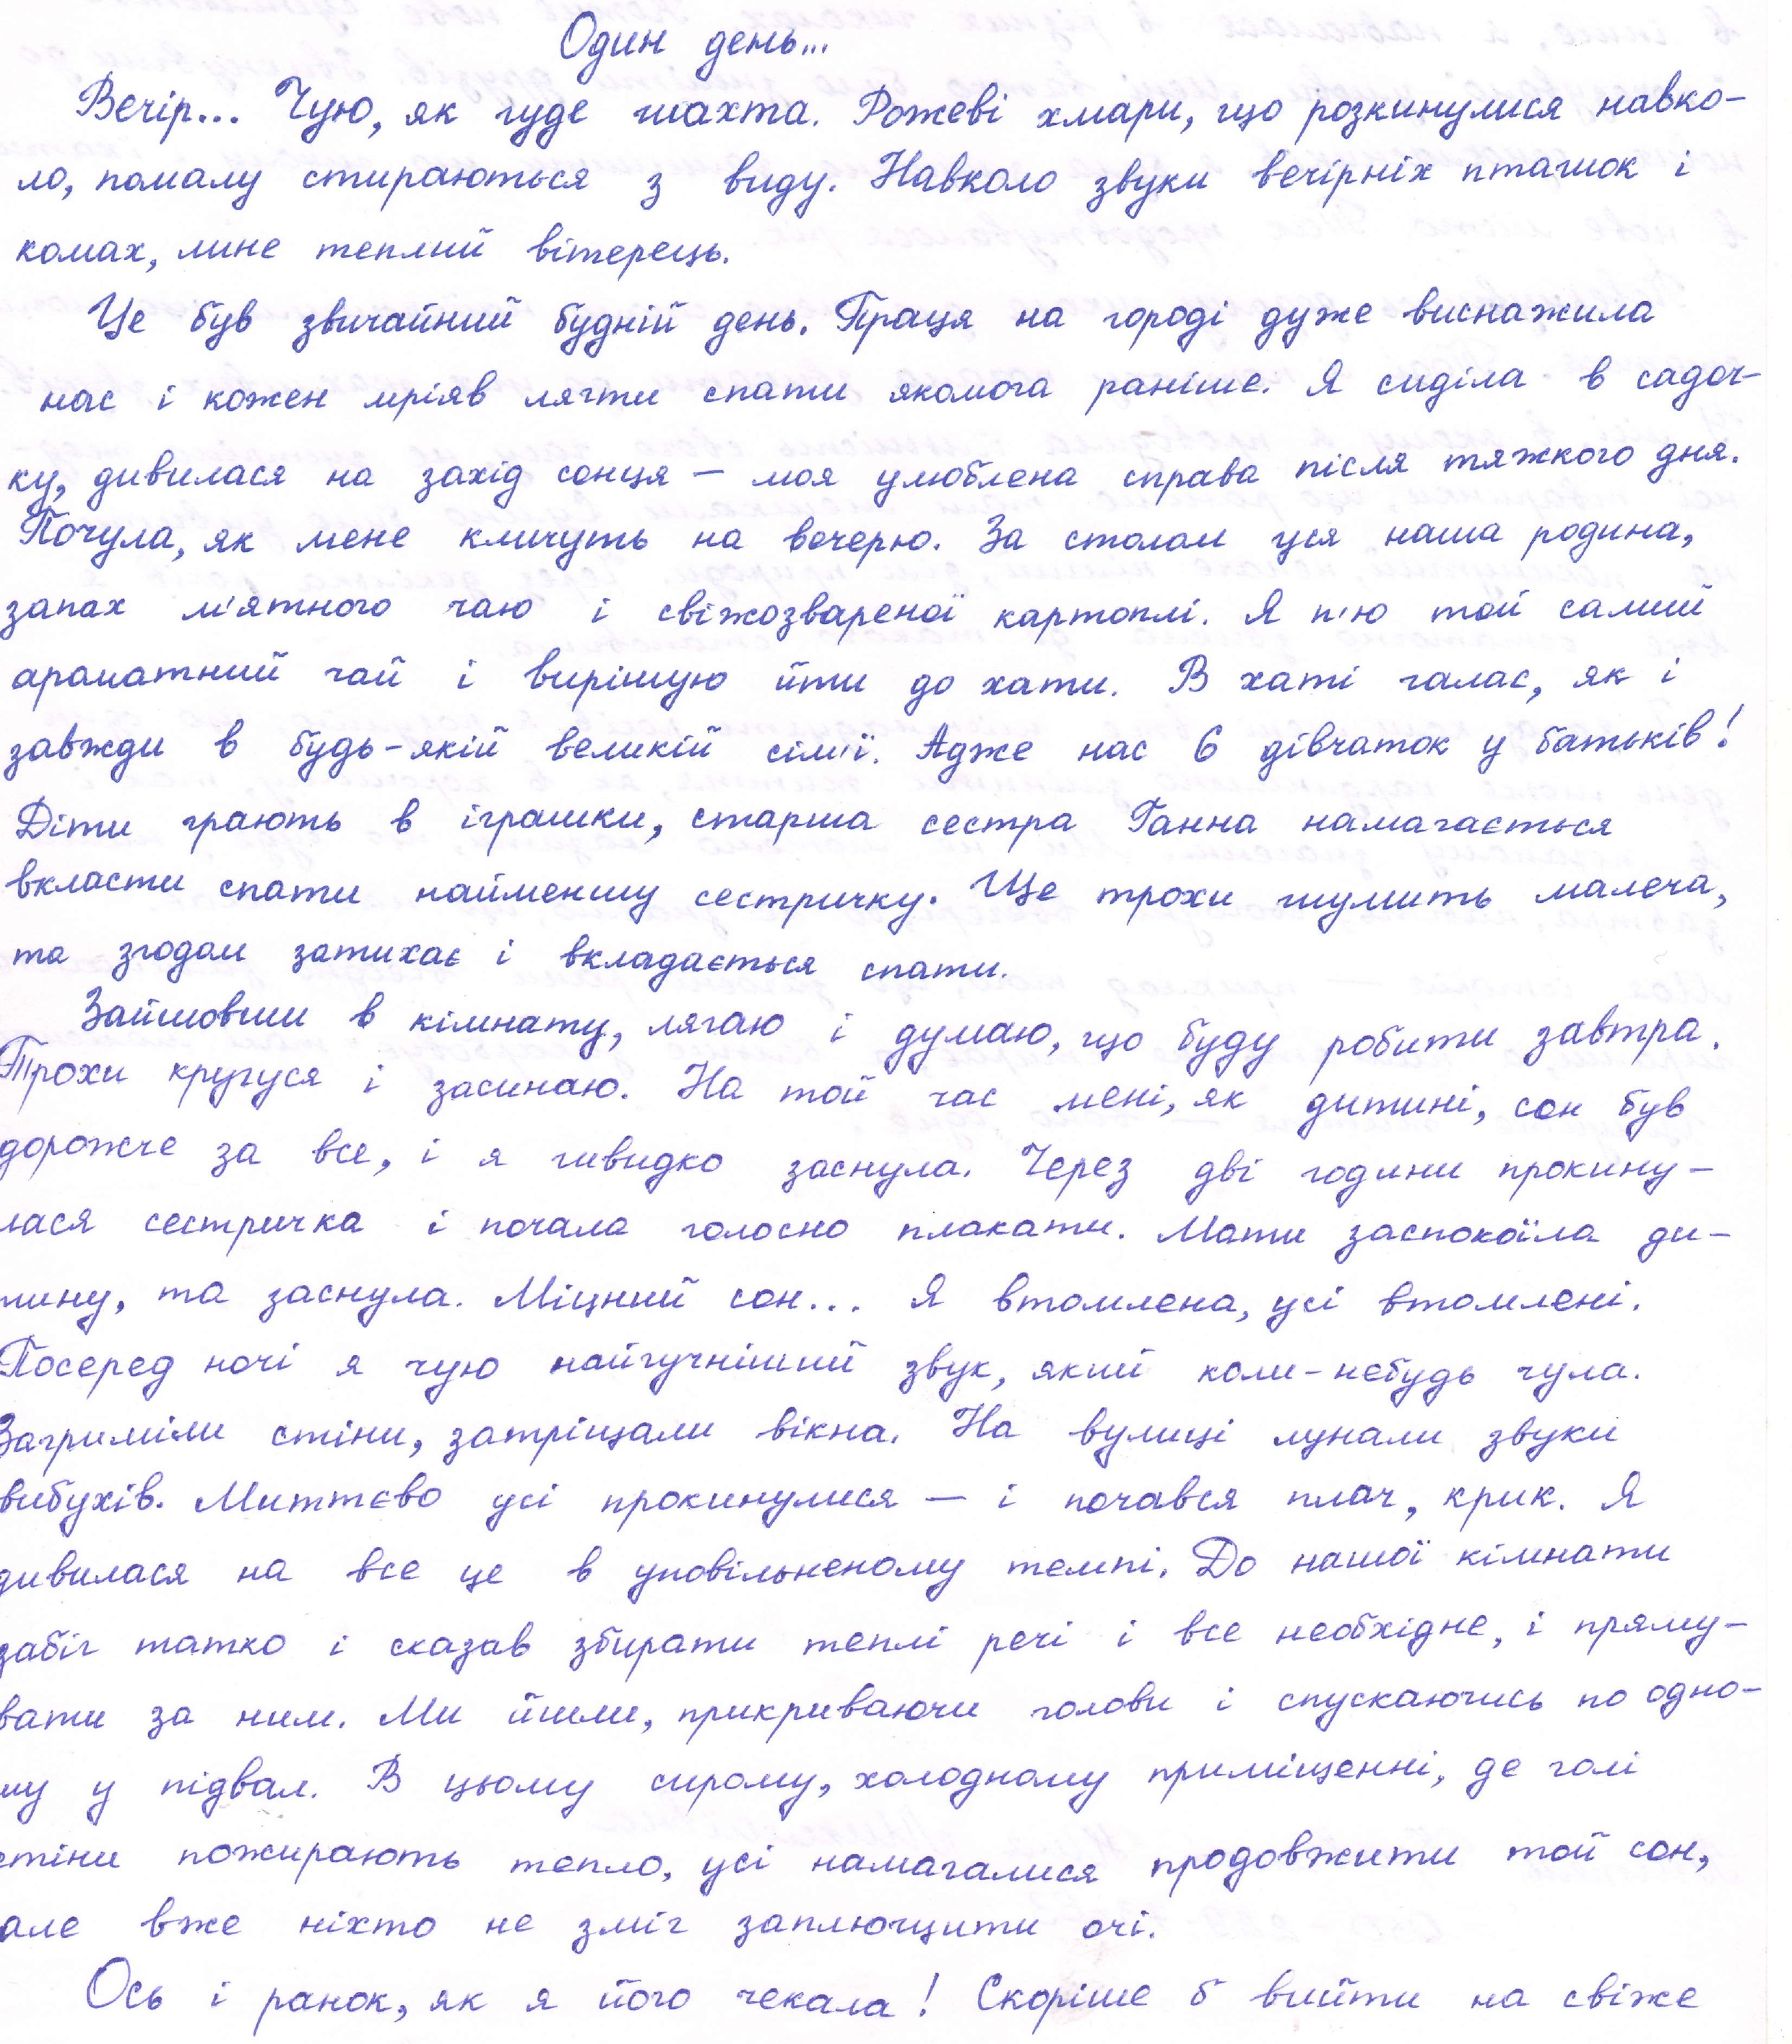 Один день...
Вечір... Чую, як гуде шахта. Рожеві хмари, що розкинулися навко-
ло, помалу стираються з виду. Навколо звуки вечірніх пташок і
комах, лине теплий вітерець.
Це був звичайний будній день. Праця на городі дуже виснажила
нас і кожен мріяв лягти спати якомога раніше. Я сиділа в садоч-
ку, дивилася на захід сонця – моя улюблена справа після тяжкого дня.
Почула, як мене кличуть на вечерю. За столом уся наша родина,
запах м'ятного чаю і свіжозвареної картоплі. Я п'ю той самий
ароматний чай і вирішую йти до хати. В хаті галас, як і
завжди в будь-якій великій сім'ї. Адже нас 6 дівчаток у батьків!
Діти грають в іграшки, старша сестра Ганна намагається
вкласти спати найменшу сестричку. Ще трохи шумить малеча,
та згодом затихає і вкладається спати.
Зайшовши в кімнату, лягаю і думаю, що буду робити завтра.
Трохи кручуся і засинаю. На той час мені, як дитині, сон був
дорожче за все, і я швидко заснула. Через дві години прокину-
лася сестричка і почала голосно плакати. Мати заспокоїла ди-
тину, та заснула. Міцний сон... Я втомлена, усі втомлені.
Посеред ночі я чую найгучніший звук, який коли-небудь чула.
Загриміли стіни, затріщали вікна. На вулиці лунали звуки
вибухів. Миттєво усі прокинулися – і почався плач, крик. Я
дивилася на все це в уповільненому темпі. До нашої кімнати
забіг татко і сказав збирати теплі речі і все необхідне, і пряму-
вати за ним. Ми йшли, прикриваючи голови і спускаючись по одно-
му у підвал. В цьому сирому, холодному приміщенні, де голі
стіни пожирають тепло, усі намагалися продовжити той сон,
але вже ніхто не зміг заплющити очі.
Ось і ранок, як я його чекала! Скоріше б вийти на свіже